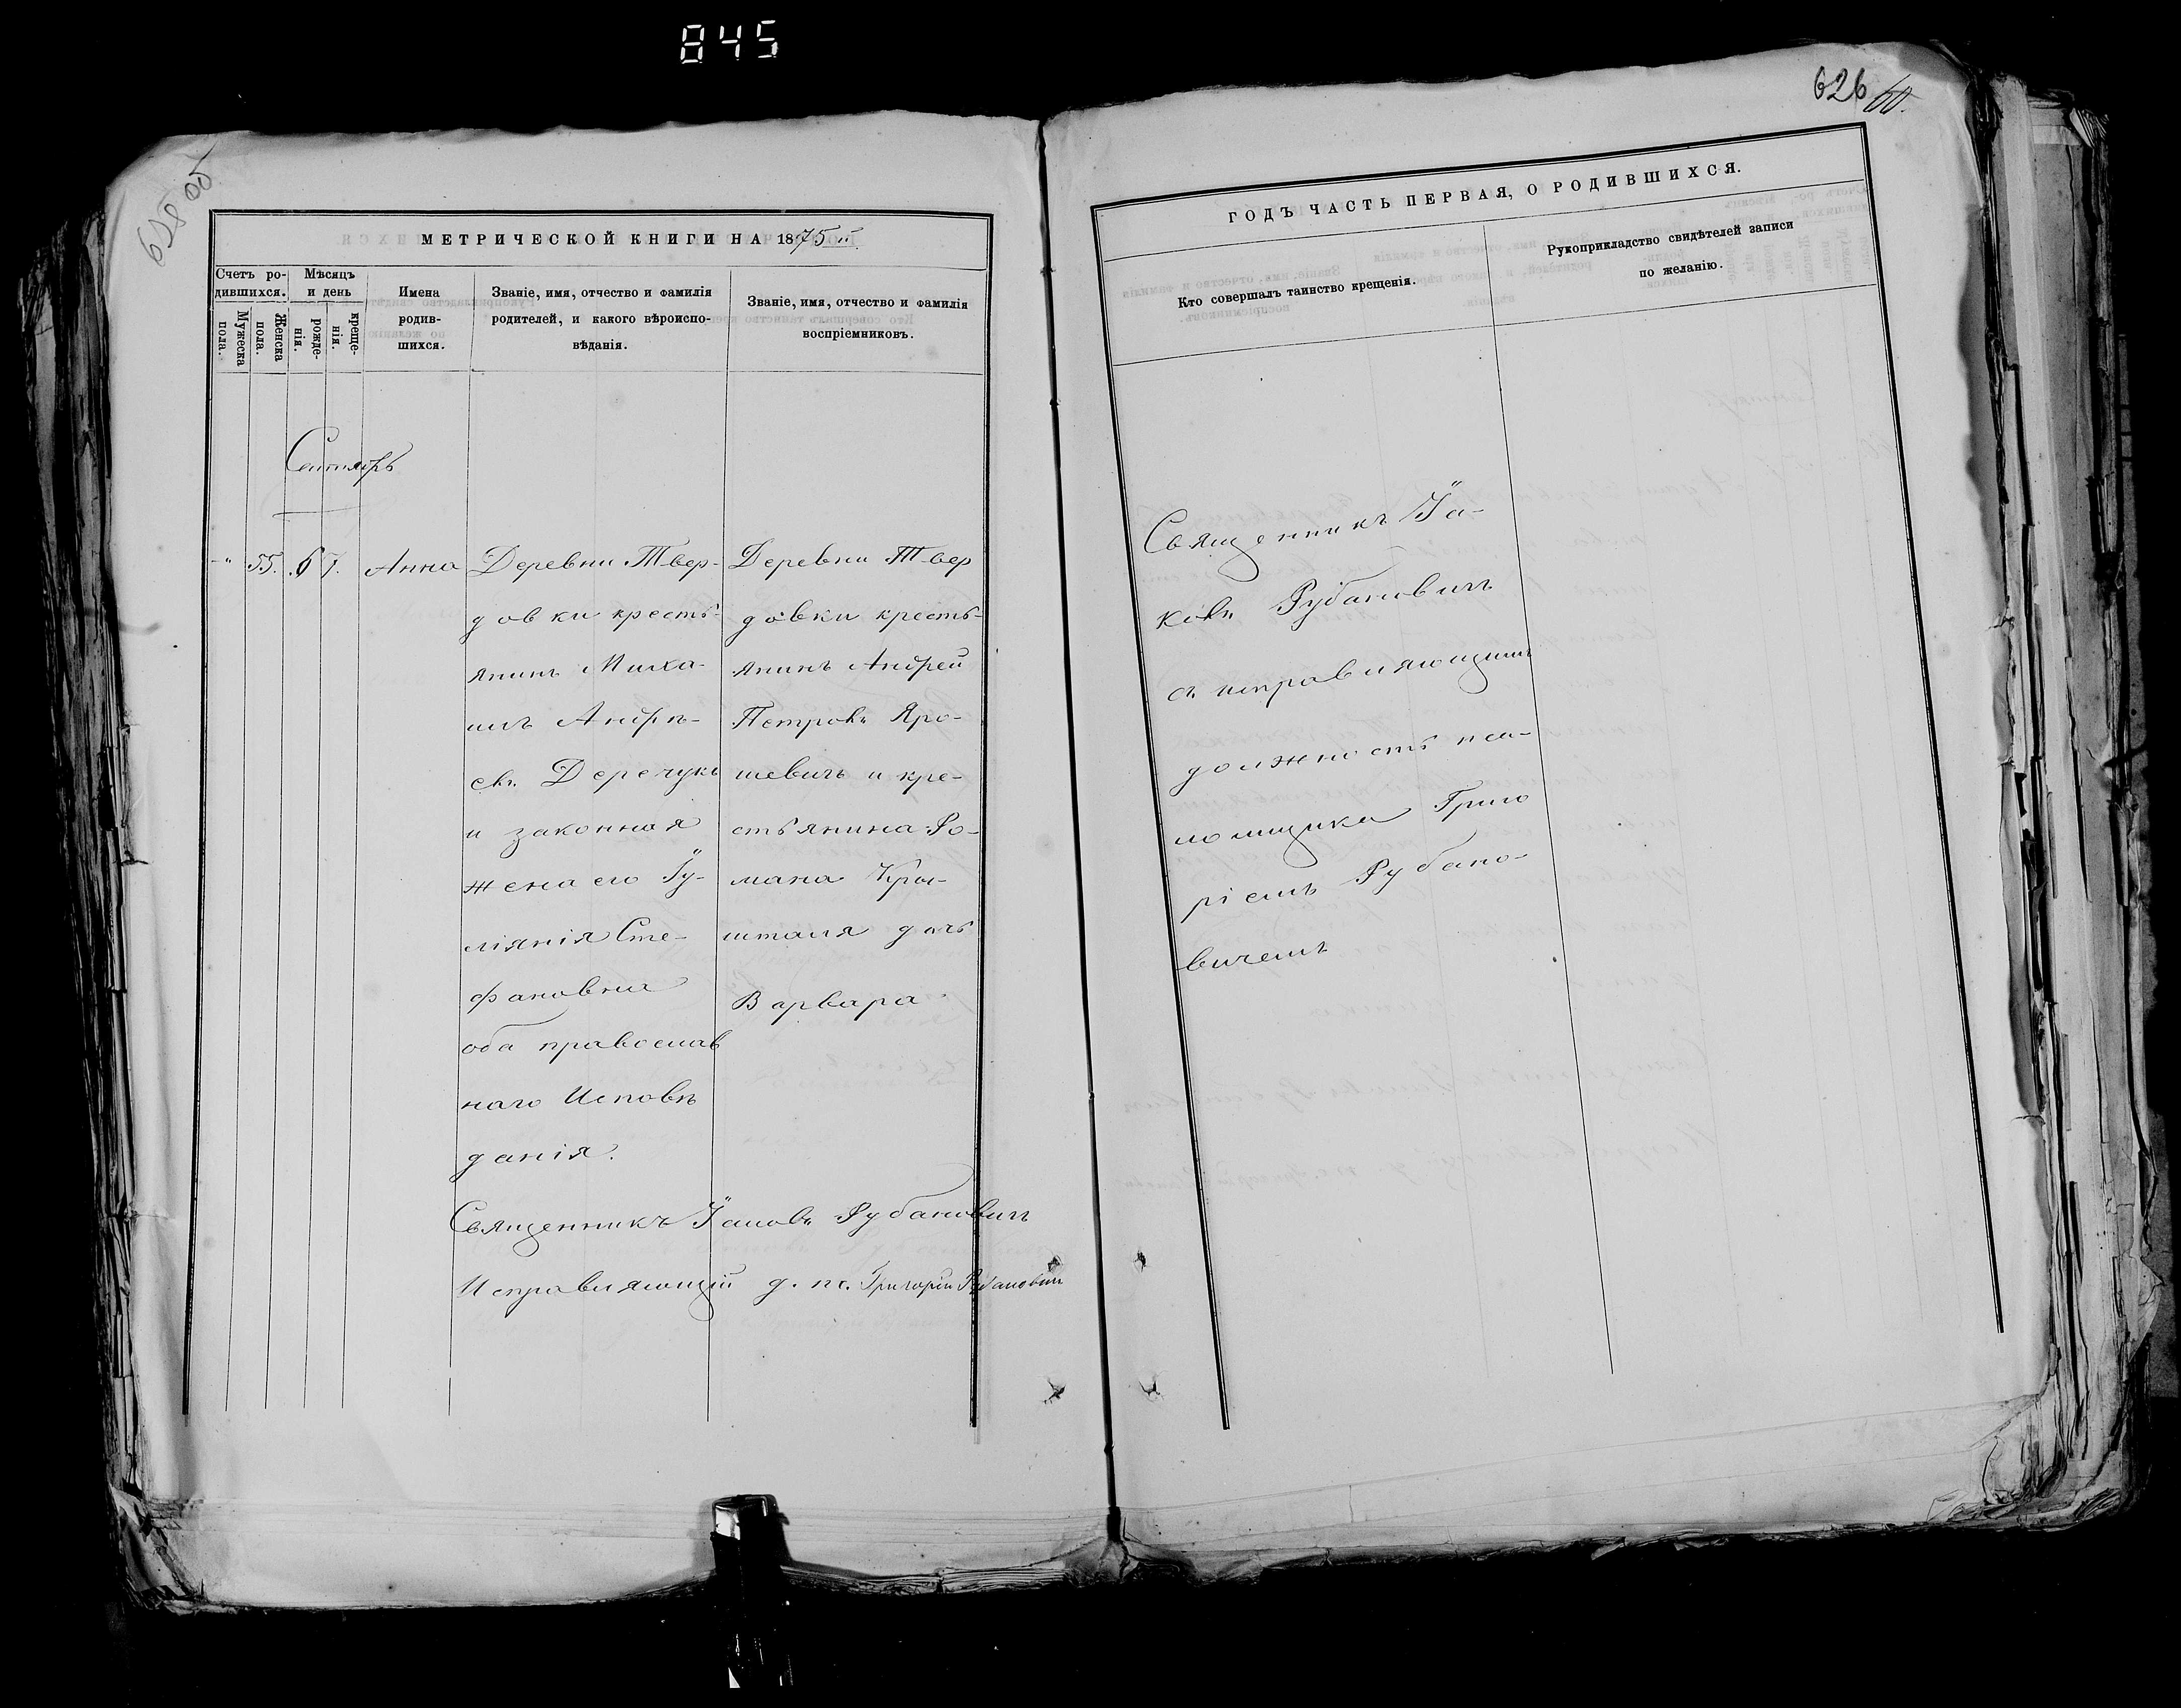 845
626 60.
МЕТРИЧЕСКОЙ КНИГИ НА 1875
Счетъ ро-
дившихся.
Мужеска
пола.
Женска
пола.
Мѣсяцъ
и день
рожде-
нія.
креще-
нія.
Имена
родив-
шихся.
Званіе, имя, отчество и фамилія
родителей, и какого вѣроиспо-
вѣданія.
Званіе, имя, отчество и фамилія
воспріемниковъ.
Сентябрь
" 55. 6 7. Анна
Деревни Твер-
довки кресть-
янинъ Миха-
илъ Андрѣ-
евъ Деречукъ
и законная
жена его Іу-
ліянія Сте-
фановна
оба православ
наго Исповѣ
данія.
Деревни Твер
довки кресть-
янинъ Андрей
Петровъ Яро-
шевичъ и кре-
стьянина Ро-
мана
шталя дочь
Варвара
Священникъ Іаковъ Рубановичъ
Исправляющій д. пс. Григорій Рубановичъ
ГОДЪ ЧАСТЬ ПЕРВАЯ, О РОДИВШИХСЯ.
Кто совершалъ таинство крещенія.
Рукоприкладство свидѣтелей записи
по желанію.
Священникъ Іа-
ковъ Рубановичъ
съ исправляющимъ
должность пса-
ломщика Григо
ріемъ Рубано-
вичемъ